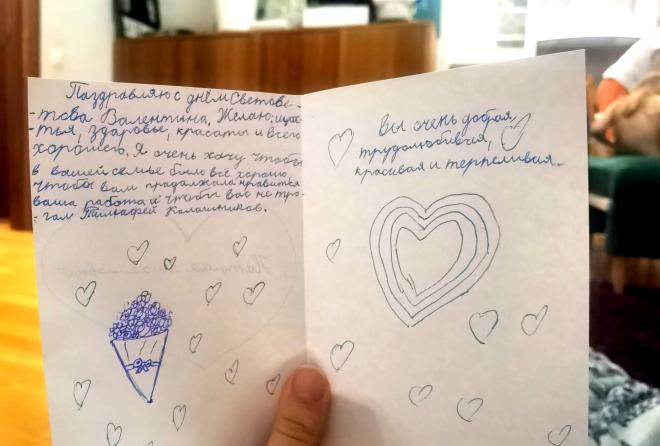 Паздравляю с днём Светове-
-това Валентина, Желаю; щас-
-тья, здаровье, красаты и всего
хорошего, Я очень хочу чтобы
в вашей семье было всё хорошо,
чтобы вам прадалжала нравится
ваша работа и чтобы вас не тро-
-гал Тимафей Калашников.
Вы очень добрая,
трудомобивая,
красивая и терпеливая.